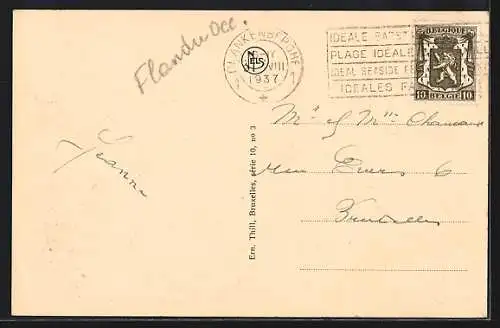 Flandr Occ.
BLANKENBERGHE
NELS
VIII
1937
1
IDEALE
PLAGE IDEAL
IDEAL SEASIDE
IDEALES
BELGIQUE
10 BELGIE 10
Mr et Mme
rue 6
Bruxelles
Jeanne
Ern. Thill, Bruxelles, série 10, no 3